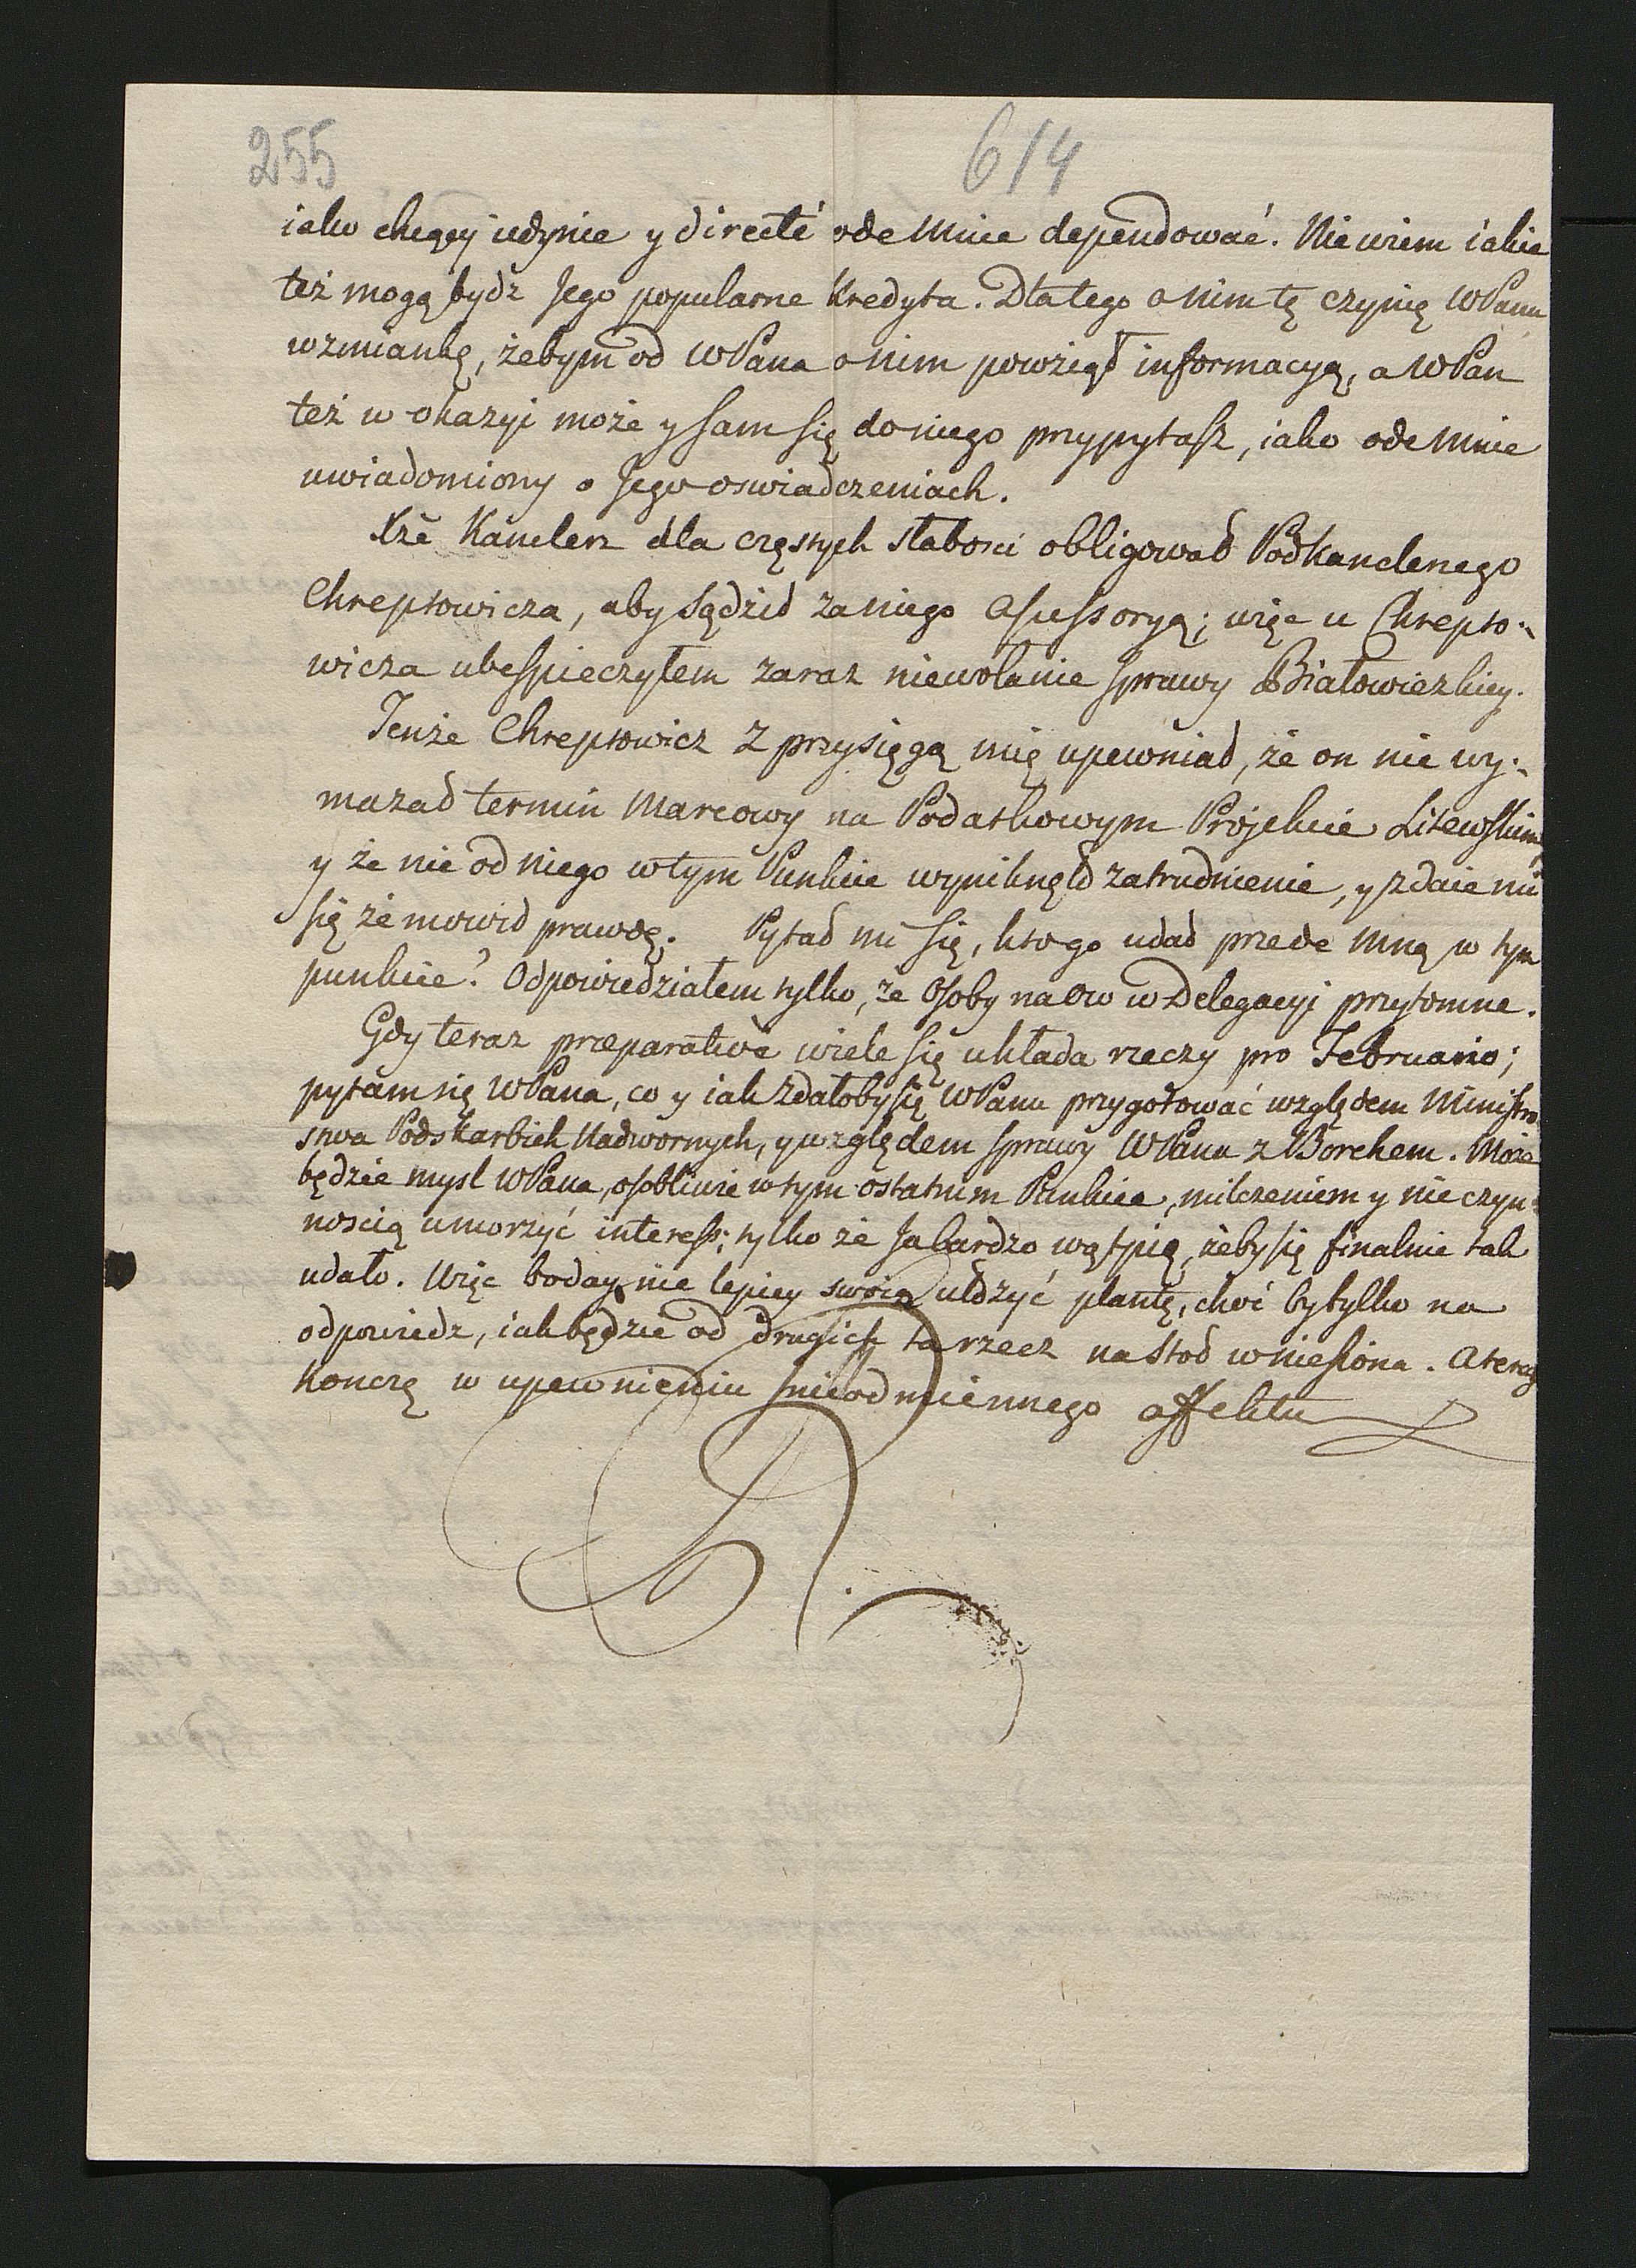 255 614
iako chcący iedynie y directé odemnie dependować. Niewiem iakie
też mogą bydź Jego popularne Kredyta. Dlatego o nim tę czynię WPanu
wzmiankę, żebym od WPana o nim powziął informacyą, a WPan
też w okazyi może y sam się do niego przypytasz, iako odemnie
uwiadomiony o Jego oswiadczeniach.
Xżę Kanclerz dla częstych słabosci obligował Podkanclerzego
Chreptowicza, aby sądził za niego Assessoryą; więc u Chrepto-
wicza ubespieczyłem zaraz niewołanie sprawy Białowiezkiey.
Tenże Chreptowicz z przysięgą mię upewniał, że on nie wy-
mazał termin Marcowy na Podatkowym Projekcie Litewskim
y że nie od niego w tym Punkcie wyniknęło zatrudnienie, y zdaie mi
się że mowił prawdę. Pytał mi się, kto go udał przede mną w tym
punkcie? Odpowiedziałem tylko, że Osoby na ow w Delegacyi przytomne.
Gdy teraz præparativè wiele się układa rzeczy pro Februario;
pytam się WPana, co y iak zdałoby się WPanu przygotować względem Ministro
stwa Podskarbich Nadwornych, y względem sprawy WPana z Borchem. Może
będzie mysl WPana, osobliwie w tym ostatnim Punkcie, milczeniem y nieczyn-
noscią umorzyć interess; tylko że Ja bardzo wątpię, żeby się finalnie tak
udało. Więc boday nie lepiey swoią ułożyć plantę, choć by tylko na
odpowiedz, iak będzie od drugich ta rzecz na stoł wniesiona. A teraz
Konczę w upewnieniu nieodmiennego affektu